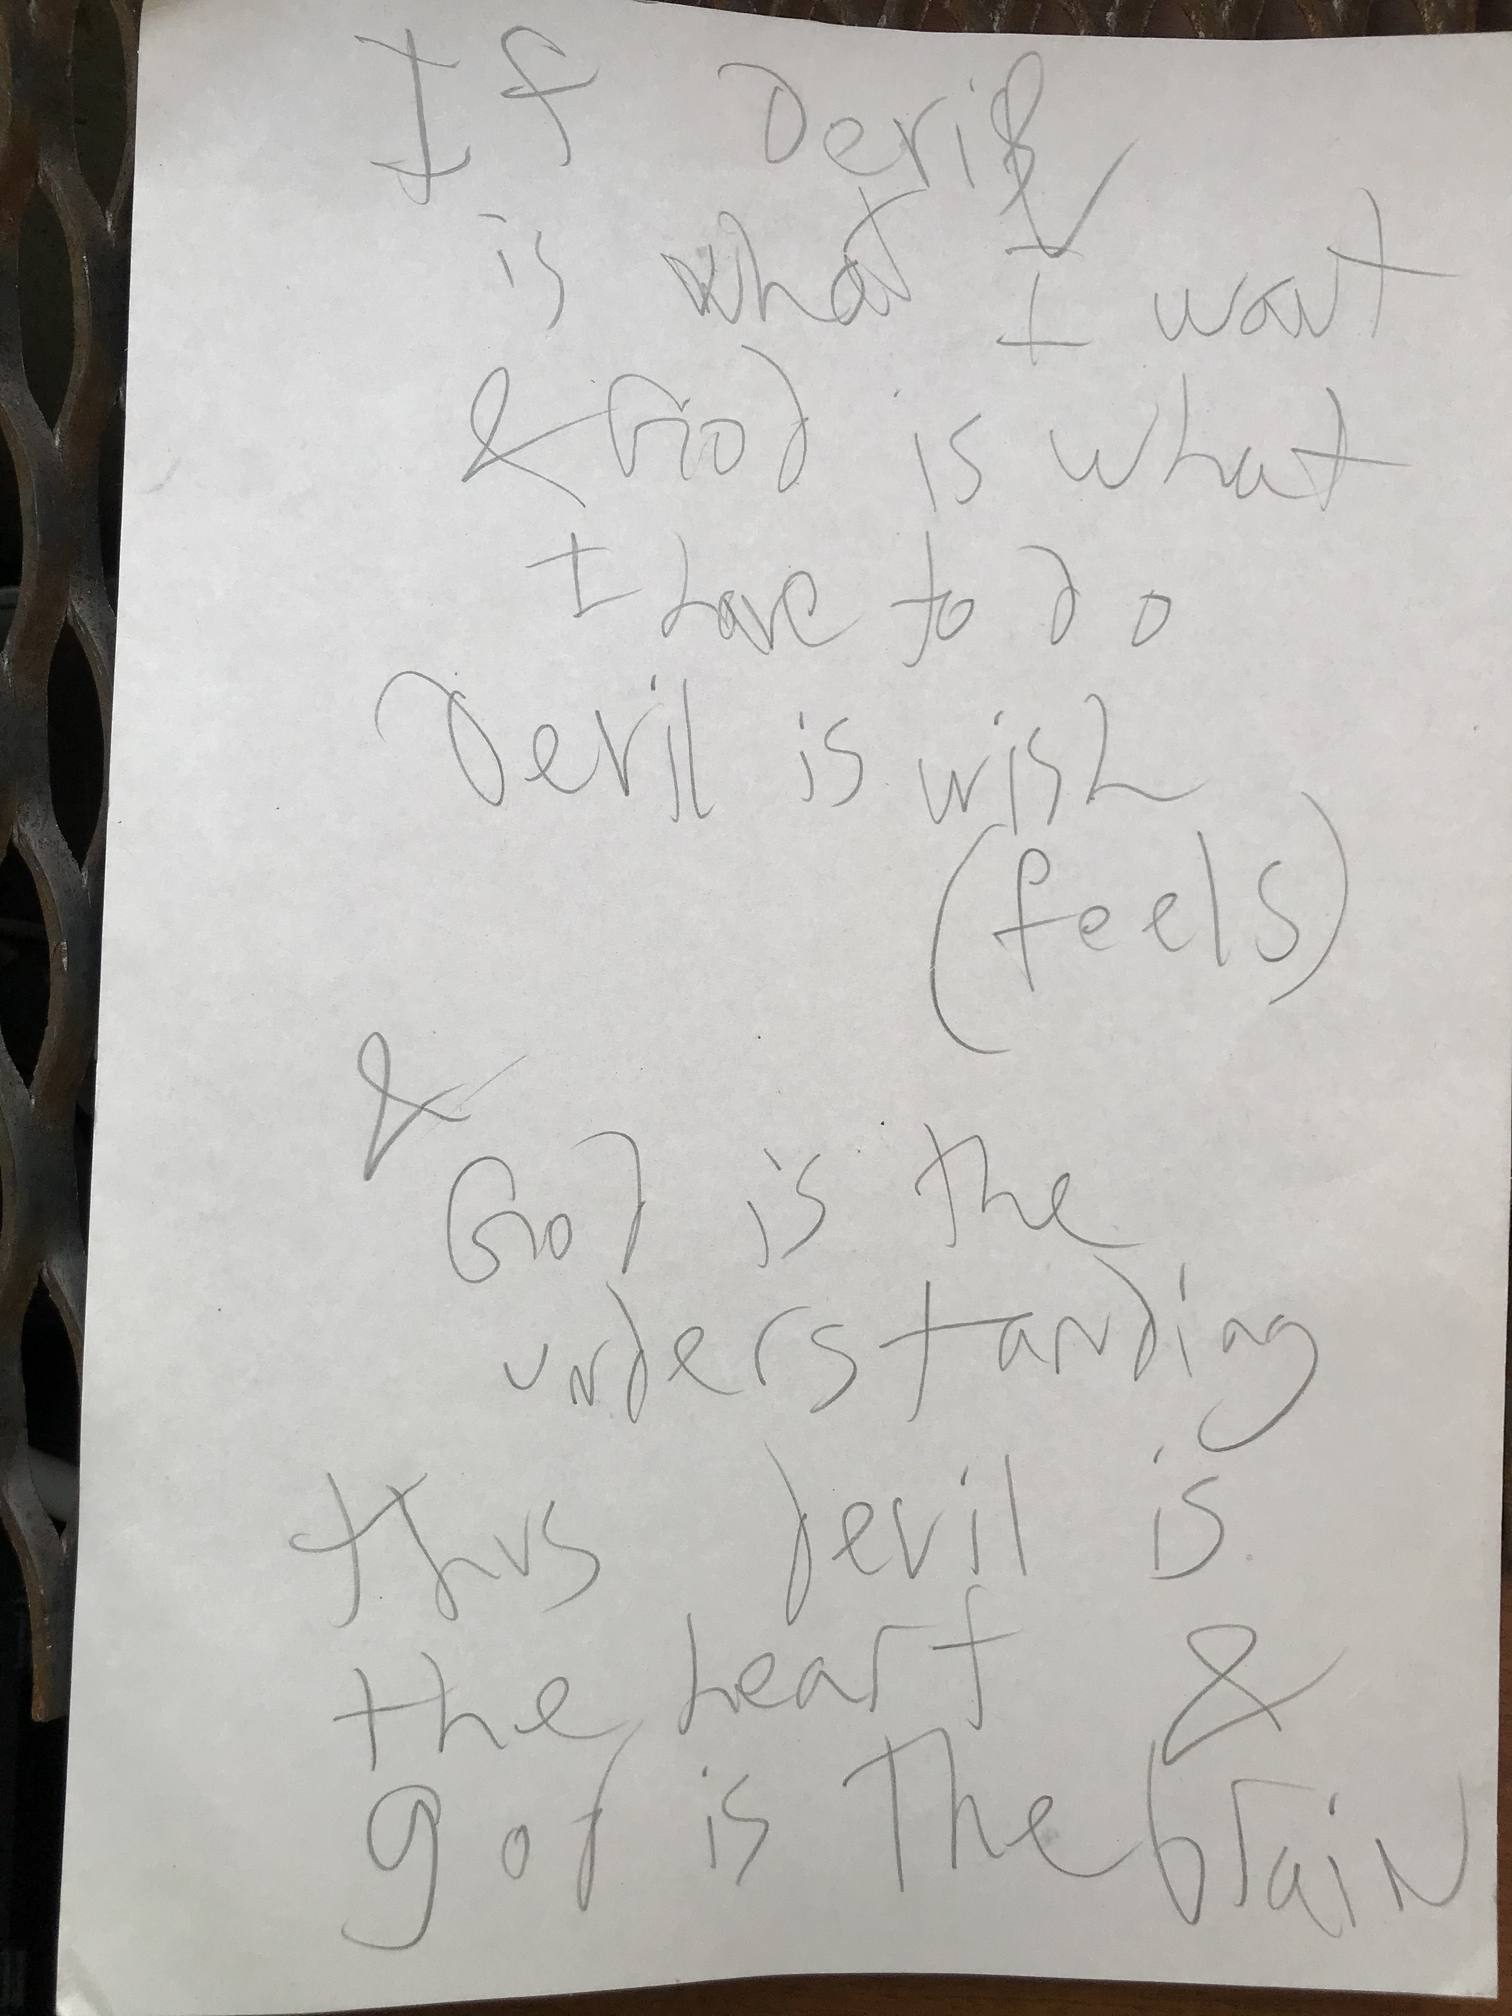 If Devil
is what I want
& God is what
I have to do
Devil is wish
(feels)
&
God is the
understanding
thus Devil is
the heart &
god is The brain